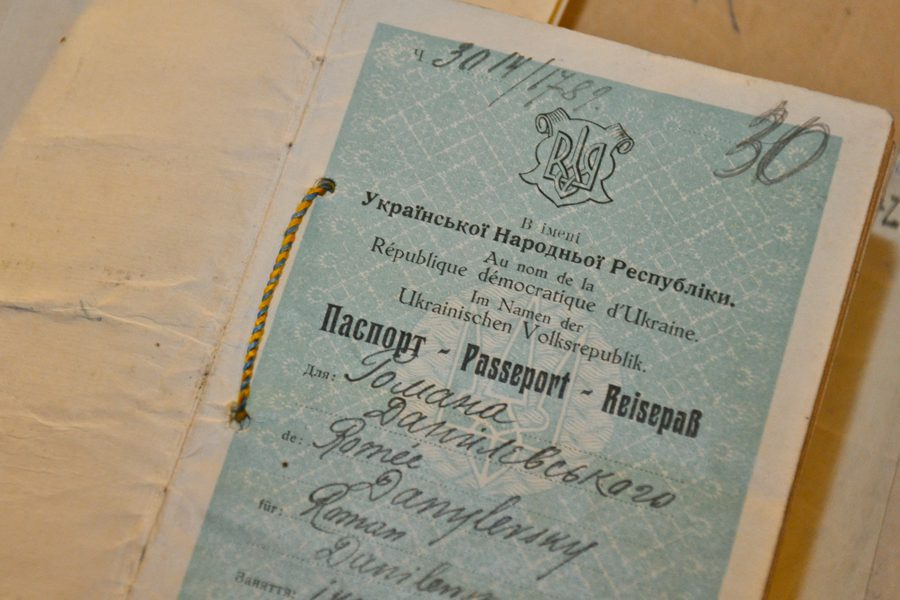 Ч 3014/1789.
30
В імені
Української Народньої Республіки.
Au nom de la
République démocratique d'Ukraine.
Im Namen der
Ukrainischen Volksrepublik.
Паспорт - Passeport - Reisepaß
Для: Романа
Данилевського
de: Romée
Danylevsky
für: Roman
Заняття: